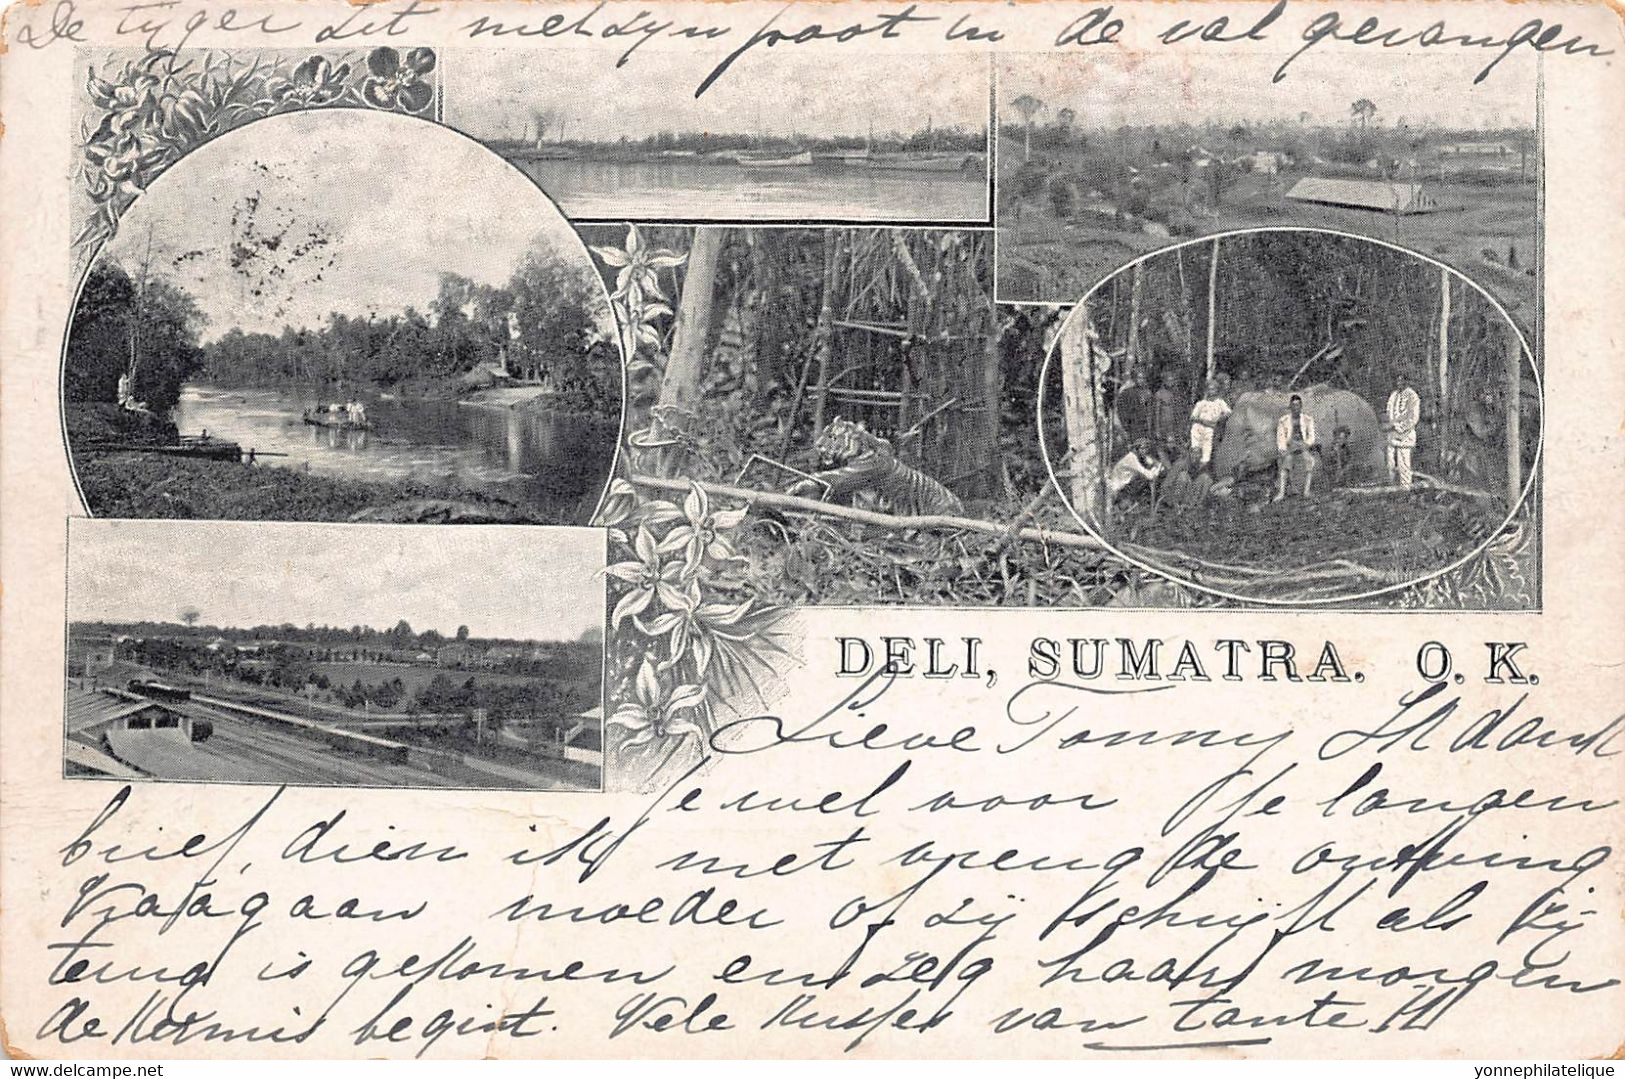 De tijger zit met zijn poot in de val gevangen.
DELI, SUMATRA. O. K.
Lieve Tonny Ik dank
je wel voor je langen
brief, dien ik met vreugde ontving
Vraag aan moeder of zij schrijft als zij
terug is gekomen en zeg haar morgen
de Kermis begint. Vele kusjes van tante
yonnephilatelique